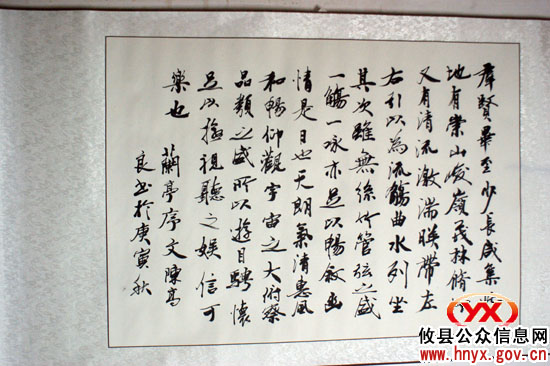 羣賢畢至少長咸集
地有崇山峻嶺茂林脩
又有清流激湍暎帶左
右引以為流觴曲水列坐
其次雖無絲竹管弦之盛
一觴一詠亦足以暢敘幽
情是日也天朗氣清惠風
和暢仰觀宇宙之大俯察
品類之盛所以遊目騁懷
足以極視聽之娛信可
樂也 蘭亭序文陳高
良書於庚寅秋
YX
攸县公众信息网
www.hnyx.gov.cn